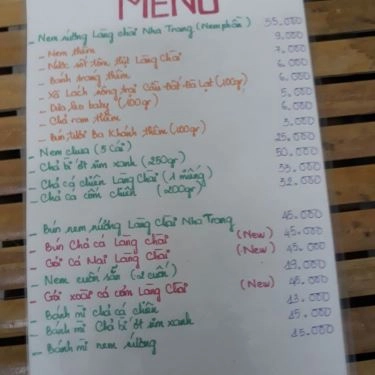 MENU
- Nem nướng Làng chài Nha Trang (Nem phần) 55.000
- Nem thêm 9.000
- Nước sốt tôm thịt Làng Chài 7.000
- Bánh tráng thêm 6.000
- Xà Lách sông trại Cầu Đất Đà Lạt (100gr) 6.000
- Dưa leo baby (100gr) 5.000
- Chả ram thêm 6.000
- Bún tươi Ba Khánh thêm (100gr) 3.000
- Nem chua (5 cái) 25.000
- Chả bì ớt sim xanh (250gr) 50.000
- Chả cá chiên Làng Chài (1 miếng) 35.000
- Chả cá cốm chiên (200gr) 32.000
- Bún nem nướng Làng Chài Nha Trang 45.000
- Bún Chả cá Làng chài (New) 45.000
- Gỏi cá Mai Làng Chài (New) 45.000
- Nem cuốn sẵn (2 cuốn) 19.000
- Gỏi xoài cá cơm Làng Chài (New) 45.000
- Bánh mì chả cá chiên 13.000
- Bánh mì Chả bì ớt sim xanh 15.000
- Bánh mì nem nướng 15.000